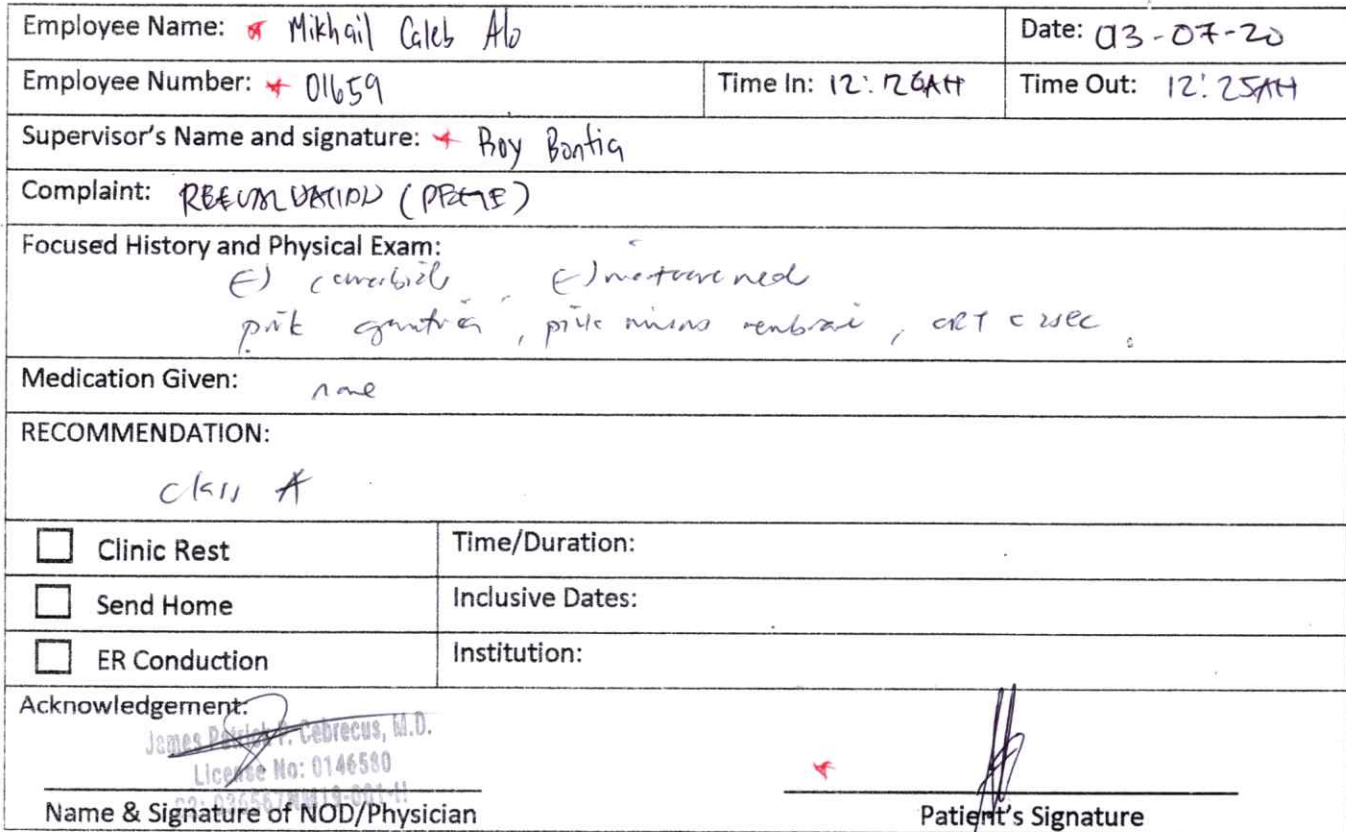 Employee Name: Mikhail Caleb Alo Date: 03-07-20
Employee Number: 01659 Time In: 12:20AM Time Out: 12:25AM
Supervisor's Name and signature: Roy Bontia
Complaint: REEVALUATION
Focused History and Physical Exam:
(-) (-)
pink , pink , CRT < 2 sec
Medication Given: none
RECOMMENDATION:
class A
Clinic Rest Time/Duration:
Send Home Inclusive Dates:
ER Conduction Institution:
Acknowledgement:
James Patrick P. Cebrecus, M.D.
License No: 0146580
Name & Signature of NOD/Physician Patient's Signature